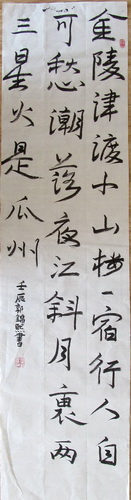 金陵津渡小山楼一宿行人自
可愁潮落夜江斜月裏两
三星火是瓜州
壬辰郭錦熙書